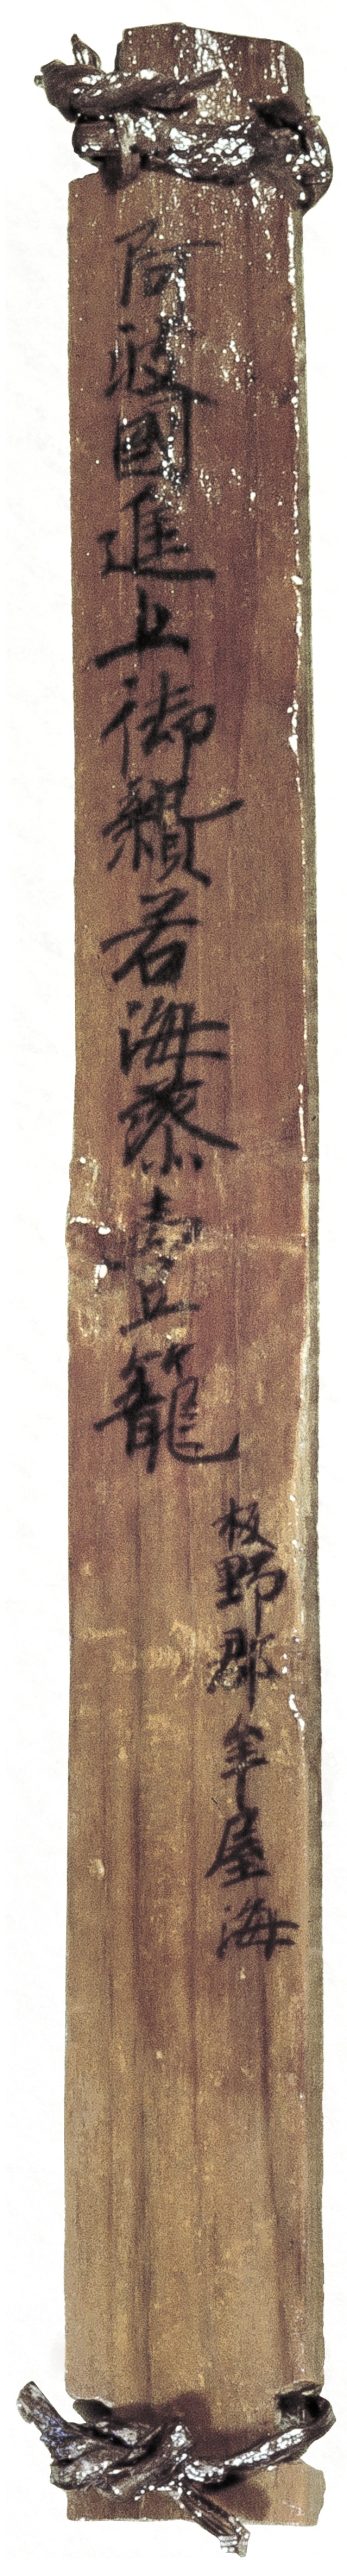 阿波國進上御贄若海藻壹籠
板野郡牟屋海